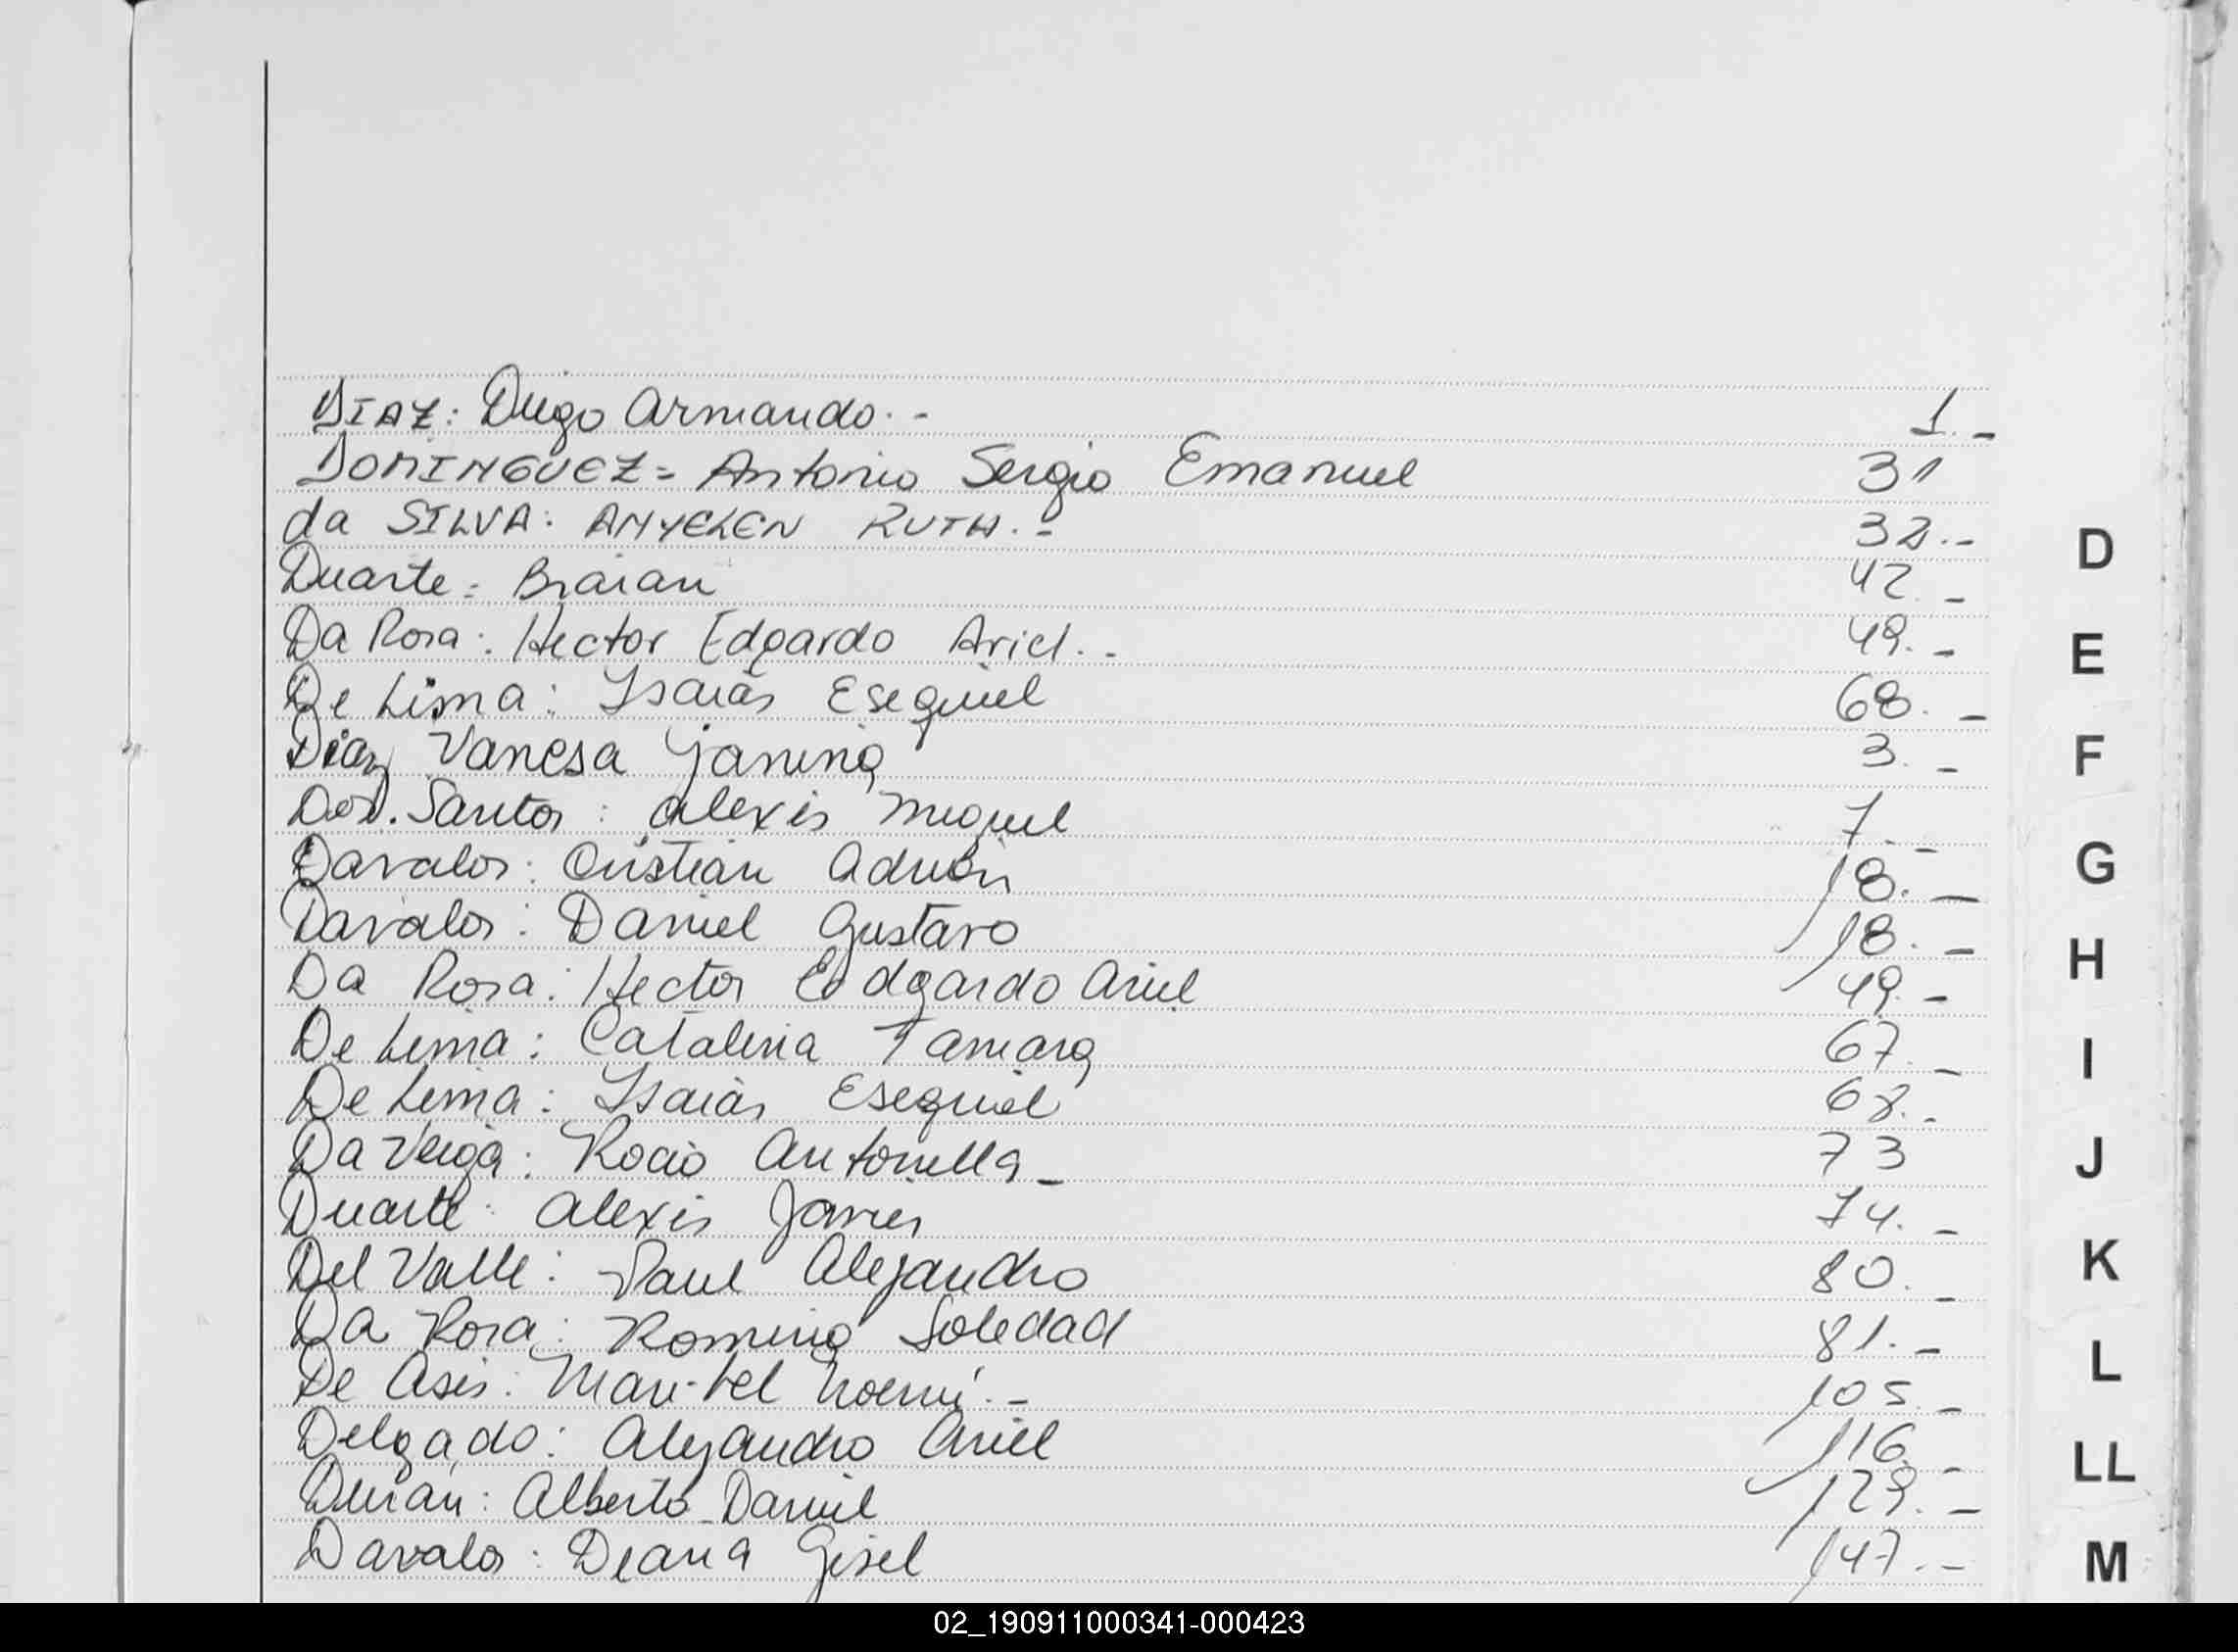 DIAZ: Diego Armando.- 1.-
DOMINGUEZ= Antonio Sergio Emanuel 31
da SILVA: ANYELEN RUTH.- 32.-
Duarte: Braian 42.-
Da Rosa: Hector Edgardo Ariel.- 49.-
De Lima: Isaías Esequiel 68.-
Diaz Vanesa Yanina 3.-
Dos Santos: Alexis Miguel 7.-
Davalos: Cristian Adrián 18.-
Davalos: Daniel Gustavo 18.-
Da Rosa: Hector Edgardo Ariel 49.-
De Lima: Catalina Tamara 67.-
De Lima: Isaías Esequiel 68.-
Da Veiga: Rocio Antonella- 73
Duarte: Alexis Javier 74.-
Del Valle: Paul Alejandro 80.-
Da Rosa: Romina Soledad 81.-
De Asis: Mari-bel Noemí.- 105.-
Delgado: Alejandro Ariel 116.-
Durán: Alberto Daniel 129.-
Davalos: Deana Gisel 147.-
D
E
F
G
H
I
J
K
L
LL
M
02_190911000341-000423